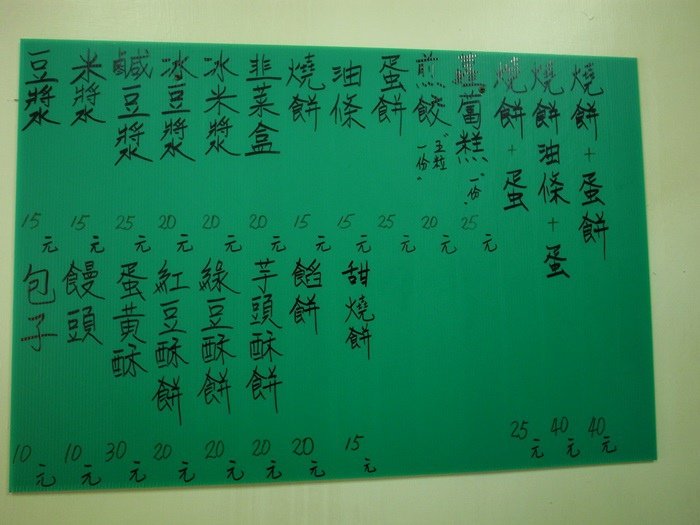 燒餅+蛋餅 40元
燒餅油條+蛋 40元
燒餅+蛋 25元
蔔糕 "一份" 25元
煎餃 "五粒一份" 20元
蛋餅 25元
油條 15元
燒餅 15元
韭菜盒 20元
冰米漿 20元
冰豆漿 20元
鹹豆漿 25元
米漿 15元
豆漿 15元
甜燒餅 15元
餡餅 20元
芋頭酥餅 20元
綠豆酥餅 20元
紅豆酥餅 20元
蛋黃酥 30元
饅頭 10元
包子 10元